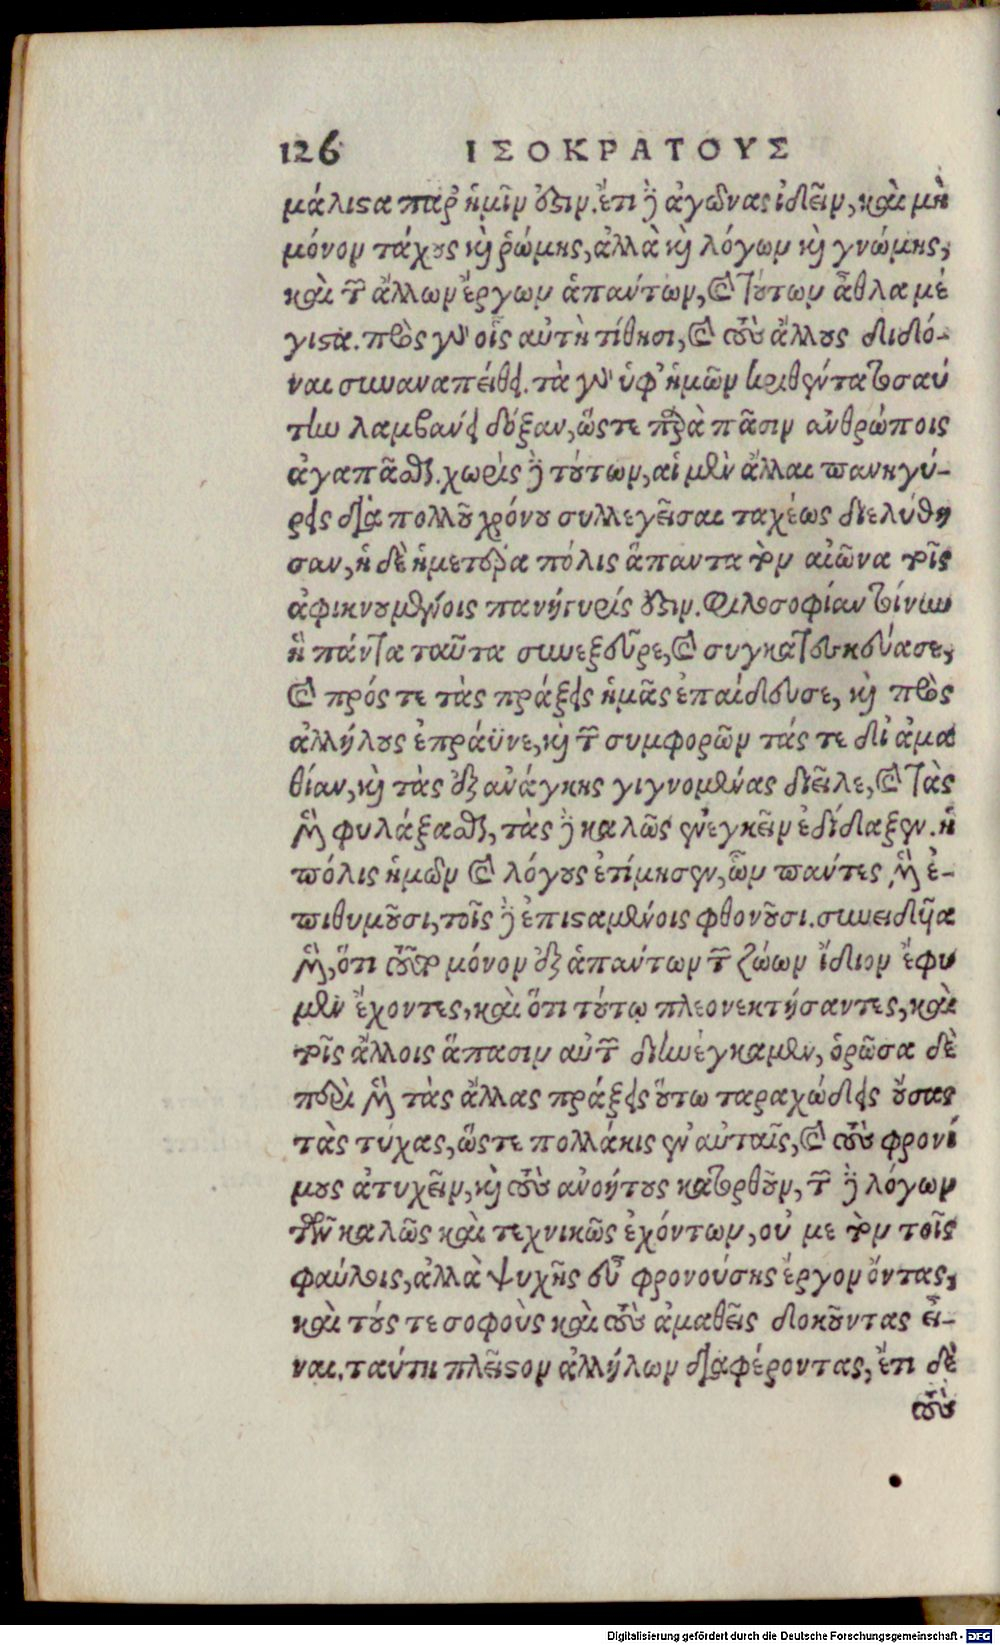 126 ΙΣΟΚΡΑΤΟΥΣ
μάλιστα παρ' ἡμῖν ὄξιν. ἔτι δ' ἀγῶνας ἰδεῖν, καὶ μὴ
μόνον τάχους καὶ ῥώμης, ἀλλὰ καὶ λόγων καὶ γνώμης,
καὶ τῶν ἄλλων ἔργων ἁπάντων, καὶ τούτων ἆθλα μέ
γιστα. πρὸς γὰρ οἷς αὐτὴ τίθησι, καὶ τοὺς ἄλλους διδό-
ναι συναναπείθει. τὰ γὰρ ὑφ' ἡμῶν κριθέντα τοσαύ
την λαμβάνει δόξαν, ὥστε παρὰ πᾶσιν ἀνθρώποις
ἀγαπᾶσθαι. χωρὶς δὲ τούτων, αἱ μὲν ἄλλαι πανηγύ-
ρεις διὰ πολλοῦ χρόνου συλλεγεῖσαι ταχέως διελύθη
σαν, ἡ δὲ ἡμετέρα πόλις ἅπαντα τὸν αἰῶνα τοῖς
ἀφικνουμένοις πανήγυρίς ἐστιν. Φιλοσοφίαν τοίνυν
ἣ πάντα ταῦτα συνεξεῦρε, καὶ συγκατεσκεύασε,
καὶ πρός τε τὰς πράξεις ἡμᾶς ἐπαίδευσε, καὶ πρὸς
ἀλλήλους ἐπράϋνε, καὶ τῶν συμφορῶν τάς τε δι' ἀμα
θίαν, καὶ τὰς ἐξ ἀνάγκης γιγνομένας διεῖλε, καὶ τὰς
μὲν φυλάξασθαι, τὰς δὲ καλῶς ἐνεγκεῖν ἐδίδαξεν. ἡ
πόλις ἡμῶν καὶ λόγους ἐτίμησεν, ὧν πάντες μὲν ἐ-
πιθυμοῦσι, τοῖς δ' ἐπισταμένοις φθονοῦσι. συνειδυῖα
μὲν, ὅτι τοῦτο μόνον ἐξ ἁπάντων τῶν ζώων ἴδιον ἔφυ
μεν ἔχοντες, καὶ ὅτι τούτῳ πλεονεκτήσαντες, καὶ
τοῖς ἄλλοις ἅπασιν αὐτῶν διηνέγκαμεν, ὁρῶσα δὲ
περὶ μὲν τὰς ἄλλας πράξεις οὕτω ταραχώδεις οὔσας
τὰς τύχας, ὥστε πολλάκις ἐν αὐταῖς, καὶ τοὺς φρονί
μους ἀτυχεῖν, καὶ τοὺς ἀνοήτους κατορθοῦν, τῶν δὲ λόγων
τῶν καλῶς καὶ τεχνικῶς ἐχόντων, οὐ με τὸν τοῖς
φαύλοις, ἀλλὰ ψυχῆς εὖ φρονούσης ἔργον ὄντας,
καὶ τούς τε σοφοὺς καὶ τοὺς ἀμαθεῖς δοκοῦντας εἶ-
ναι, ταύτῃ πλεῖστον ἀλλήλων διαφέροντας, ἔτι δὲ
τοὺς
Digitalisierung gefördert durch die Deutsche Forschungsgemeinschaft - DFG